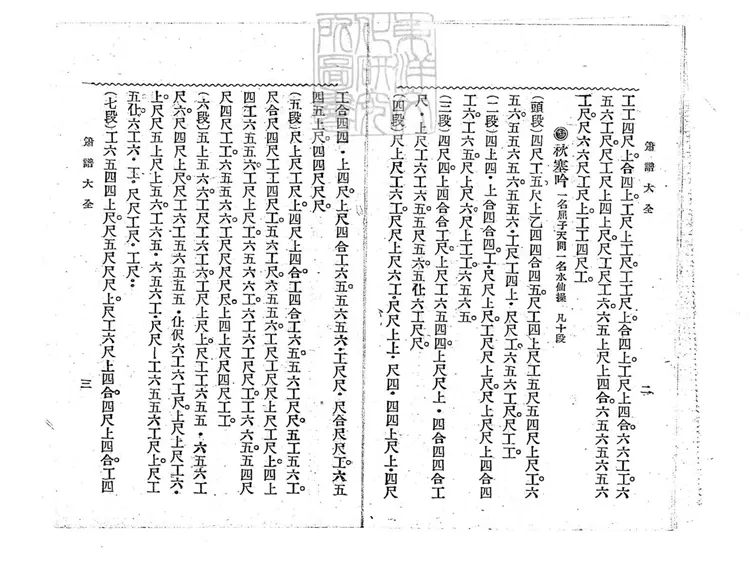 簫譜大全
二
工工四尺上合四上工尺上工尺工工尺上合四上工尺上四合六六工工六
五六工工尺工尺上四上尺尺工尺工工六六五上尺上四合六五六五六五六
工尺尺六六尺工尺上工工四尺工
秋塞吟 一名屈子天問一名水仙操 凡十段
(頭段)四尺工五尺上乙四四合四五尺工四上尺工五尺五四尺上尺工六
五六五五六五六五五六・工尺工四上・尺尺工六五六工尺尺工工
(二段)四上四・上合四合四工・尺尺上尺工尺上尺尺上尺尺上四合四
工六工六五上尺上六尺上工工六五六五
(三段)四尺四上四合合工尺上尺工六五四四尺上尺尺上・四合四四合工
尺・上尺工六工六五五尺五六五仩六工尺尺
(四段)尺上尺工六工尺工尺尺上尺六工・尺尺上工・尺四・四四上尺上・四尺
工合四四・上四尺上尺四合工六五五六五六・工尺尺・尺合尺尺工六五
四五上尺四四尺尺尺
(五段)尺上尺工尺上四尺上四合工四合工六五五六工尺尺五工五六工
尺合尺四尺工工四尺工五六工尺六五五六工尺上尺工尺工尺上四上
四工六五五六工尺上尺工六五六工六六工尺工尺工工六六五五四尺
尺四尺工工六五五六工尺尺尺尺上四上尺尺四尺工工
(六段)五上五六六工尺工六六工尺上尺上尺工工六五五・六五六工
尺六尺四尺上尺尺工六工五六五五五・仩伬六工六工尺上尺上尺工六・
上尺尺五上尺上五六工六五・六五六工・尺尺工六五五六工尺上尺工
五仩六工六・工・尺尺工尺・工尺
(七段)工六五四四上尺尺五尺尺尺上尺工六尺上四合四尺上四合工四
簫譜大全
三